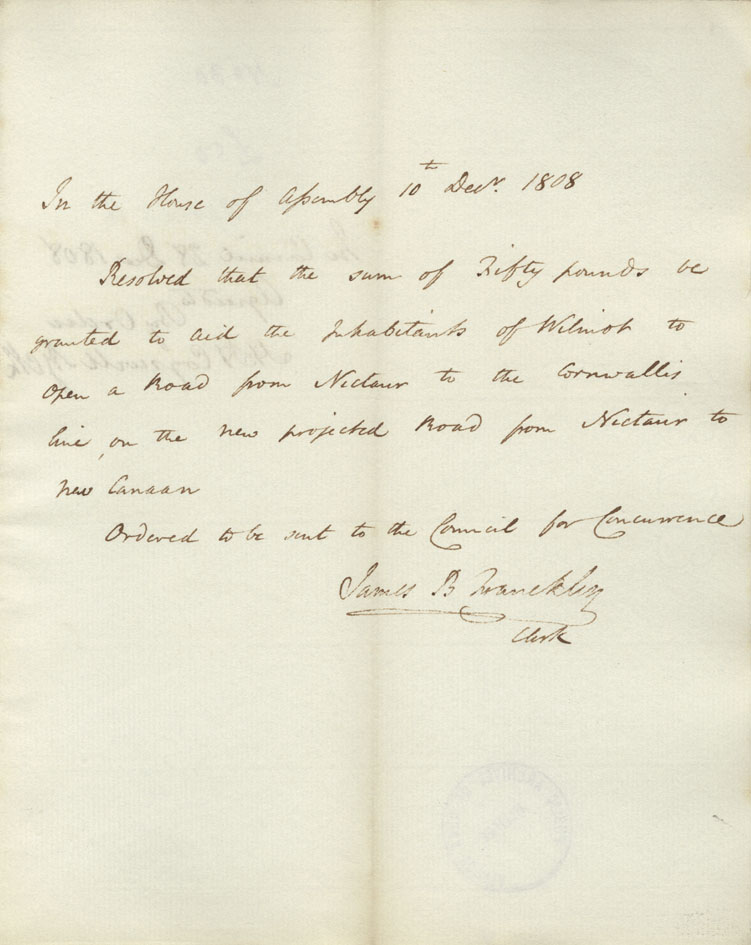 In the House of Assembly 10th Decr. 1808
Resolved that the sum of Fifty pounds be
granted to aid the Inhabitants of Wilmot to
open a Road from Nictaux to the Cornwallis
line, on the new projected Road from Nictaux to
new Canaan
Ordered to be sent to the Council for Concurrence
James B Franckling
Clerk